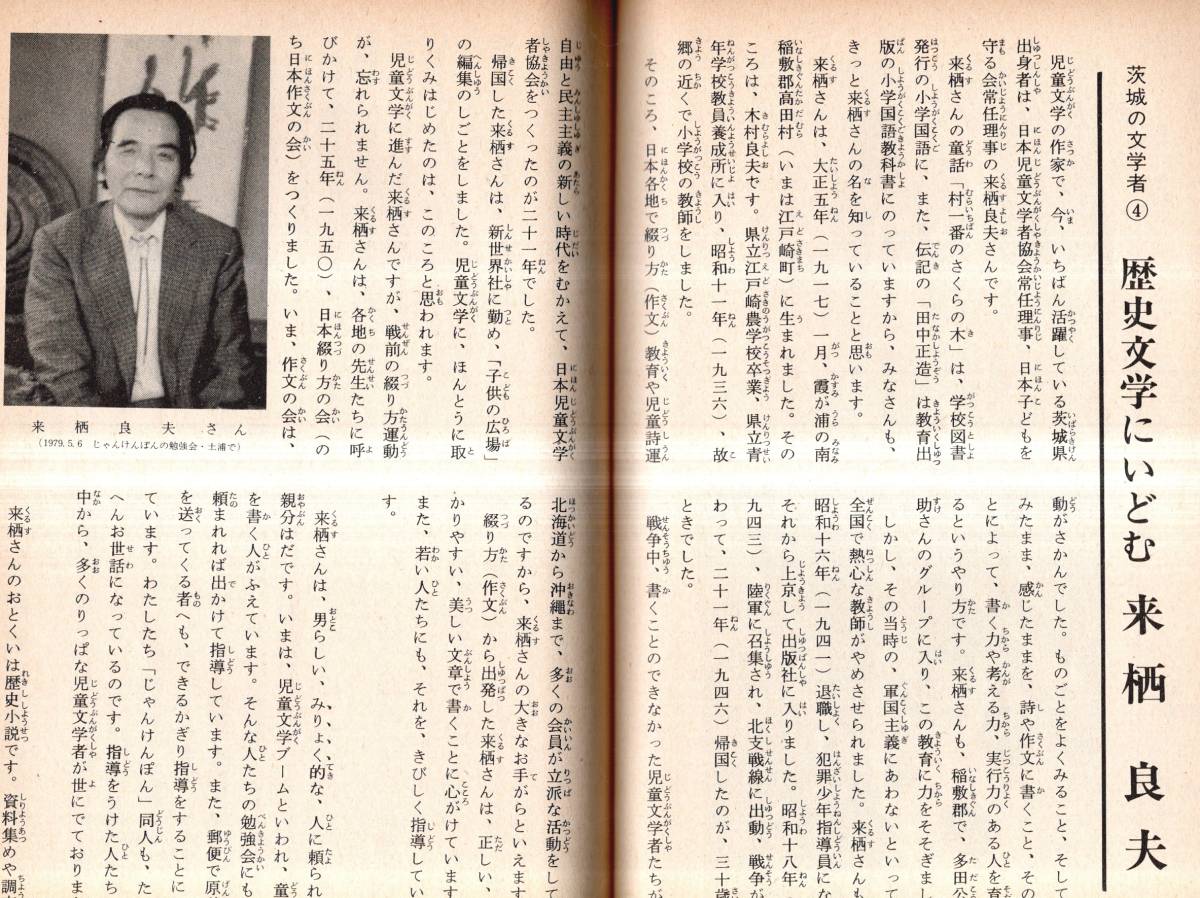 茨城の文学者④
歴史文学にいどむ 来栖良夫
児童文学の作家で、今、いちばん活躍している茨城県
出身者は、日本児童文学者協会常任理事、日本子どもを
守る会常任理事の来栖良夫さんです。
来栖さんの童話「村一番のさくらの木」は、学校図書
発行の小学国語に、また、伝記の「田中正造」は教育出
版の小学国語教科書にのっていますから、みなさんも、
きっと来栖さんの名を知っていることと思います。
来栖さんは、大正五年（一九一七）一月、霞が浦の南
稲敷郡高田村（いまは江戸崎町）に生まれました。その
ころは、木村良夫です。県立江戸崎農学校卒業、県立青
年学校教員養成所に入り、昭和十一年（一九三六）、故
郷の近くで小学校の教師をしました。
そのころ、日本各地で綴り方（作文）教育や児童詩運
動がさかんでした。ものごとをよくみること、そして
みたまま、感じたままを、詩や作文に書くこと、その
とによって、書く力や考える力、実行力のある人を育
るというやり方です。来栖さんも、稲敷郡で、多田公
助さんのグループに入り、この教育に力をそそぎまし
しかし、その当時の、軍国主義にあわないといって
全国で熱心な教師がやめさせられました。来栖さんも
昭和十六年（一九四一）退職し、犯罪少年指導員にな
それから上京して出版社に入りました。昭和十八年
九四三）、陸軍に召集され、北支戦線に出動、戦争が
わって、二十一年（一九四六）帰国したのが、三十歳
ときでした。
戦争中、書くことのできなかった児童文学者たちが
自由と民主主義の新しい時代をむかえて、日本児童文学
者協会をつくったのが二十一年でした。
帰国した来栖さんは、新世界社に勤め、「子供の広場」
の編集のしごとをしました。児童文学に、ほんとうに取
りくみはじめたのは、このころと思われます。
児童文学に進んだ来栖さんですが、戦前の綴り方運動
が、忘れられません。来栖さんは、各地の先生たちに呼
びかけて、二十五年（一九五〇）、日本綴り方の会（の
ち日本作文の会）をつくりました。いま、作文の会は、
来栖良夫さん
（1979.5.6 じゃんけんぽんの勉強会・土浦で）
北海道から沖縄まで、多くの会員が立派な活動をして
るのですから、来栖さんの大きなお手がらといえます
綴り方（作文）から出発した来栖さんは、正しい、
かりやすい、美しい文章で書くことに心がけています
また、若い人たちにも、それを、きびしく指導してい
す。
来栖さんは、男らしい、みりょく的な、人に頼られ
親分はだです。いまは、児童文学ブームといわれ、童
を書く人がふえています。そんな人たちの勉強会にも
頼まれれば出かけて指導しています。また、郵便で原
を送ってくる者へも、できるかぎり指導をすることに
ています。わたしたち「じゃんけんぽん」同人も、た
へんお世話になっているのです。指導をうけた人たち
中から、多くのりっぱな児童文学者が世にでておりま
来栖さんのおとくいは歴史小説です。資料集めや調